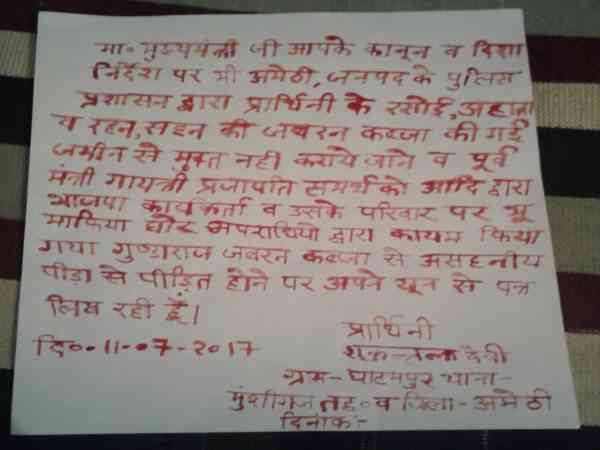 मा॰ मुख्यमंत्री जी आपके कानून व दिशा
निर्देश पर भी अमेठी, जनपद के पुलिस
प्रशासन द्वारा प्रार्थिनी के रसोई, अहाता
व रहन, सहन की जबरन कब्जा की गई
जमीन से मुक्त नही कराये जाने व पूर्व
मंत्री गायत्री प्रजापति समर्थको आदि द्वारा
भाजपा कार्यकर्ता व उसके परिवार पर भू
माफिया घोर अपराधियो द्वारा कायम किया
गया गुण्डाराज जबरन कब्जा से असहनीय
पीड़ा से पीड़ित होने पर अपने खून से पत्र
लिख रही हूँ।
प्रार्थिनी
दि०-11-07-2017
देवी
ग्राम-घाटमपुर थाना-
मुंशीगंज तह॰ व जिला-अमेठी
दिनांक:-